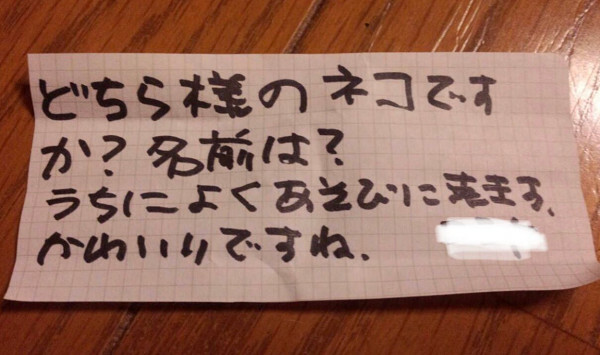 どちら様のネコです
か？名前は？
うちによくあそびに来ます。
かわいいですね。